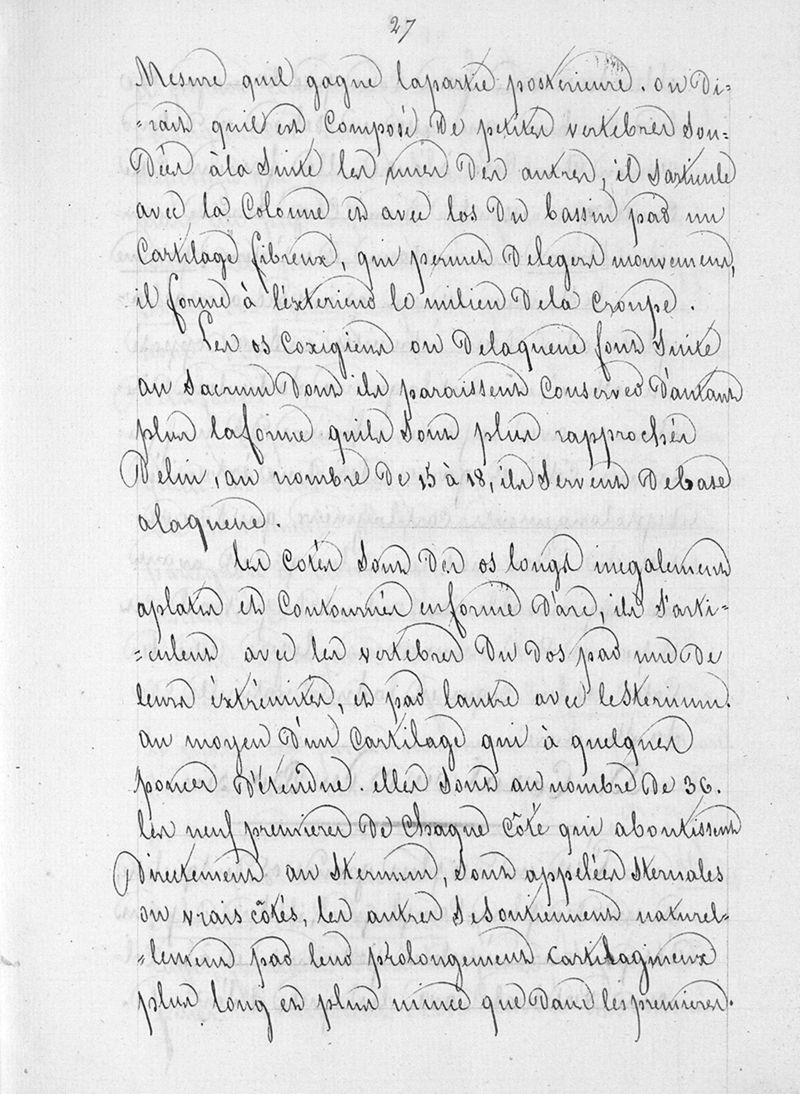 27
Mesure quil gagne lapartie posterieure. on di-
-rait quil est Composé de petites vertebres Sou-
dées àla Suite les unes des autres, il Sarticule
avec la Colonne et avec los du bassin par un
Cartilage fibreux, qui permet delegers mouvements,
il forme à l'éxterieur le milieu dela Croupe.
Les os Coxigiens ou delaqueue font Suite
au Sacrum dont ils paraissent Conserver d'autant
plus laforme quils Sont plus rapprochés
delui, au nombre de 15 à 18, ils Servent debase
alaqueue.
les Cotés Sont des os longs inegalement
aplatis et Contournés enforme d'arc, ils S'arti-
-culent avec les vertebres du dos par une de
leurs éxtrémités, et par lautre avec leSternum.
au moyen d'un Cartilage qui à quelques
pouces d'étendue. elles Sont au nombre de 36.
les neuf premieres de Chaque Côté qui aboutissent
directement au Sternum, Sont appelées Sternales
ou vrais côtés, les autres SeSoutiennent naturel-
-lement par leur prolongement Cartilagineux
plus long et plus mince que dans lespremieres.